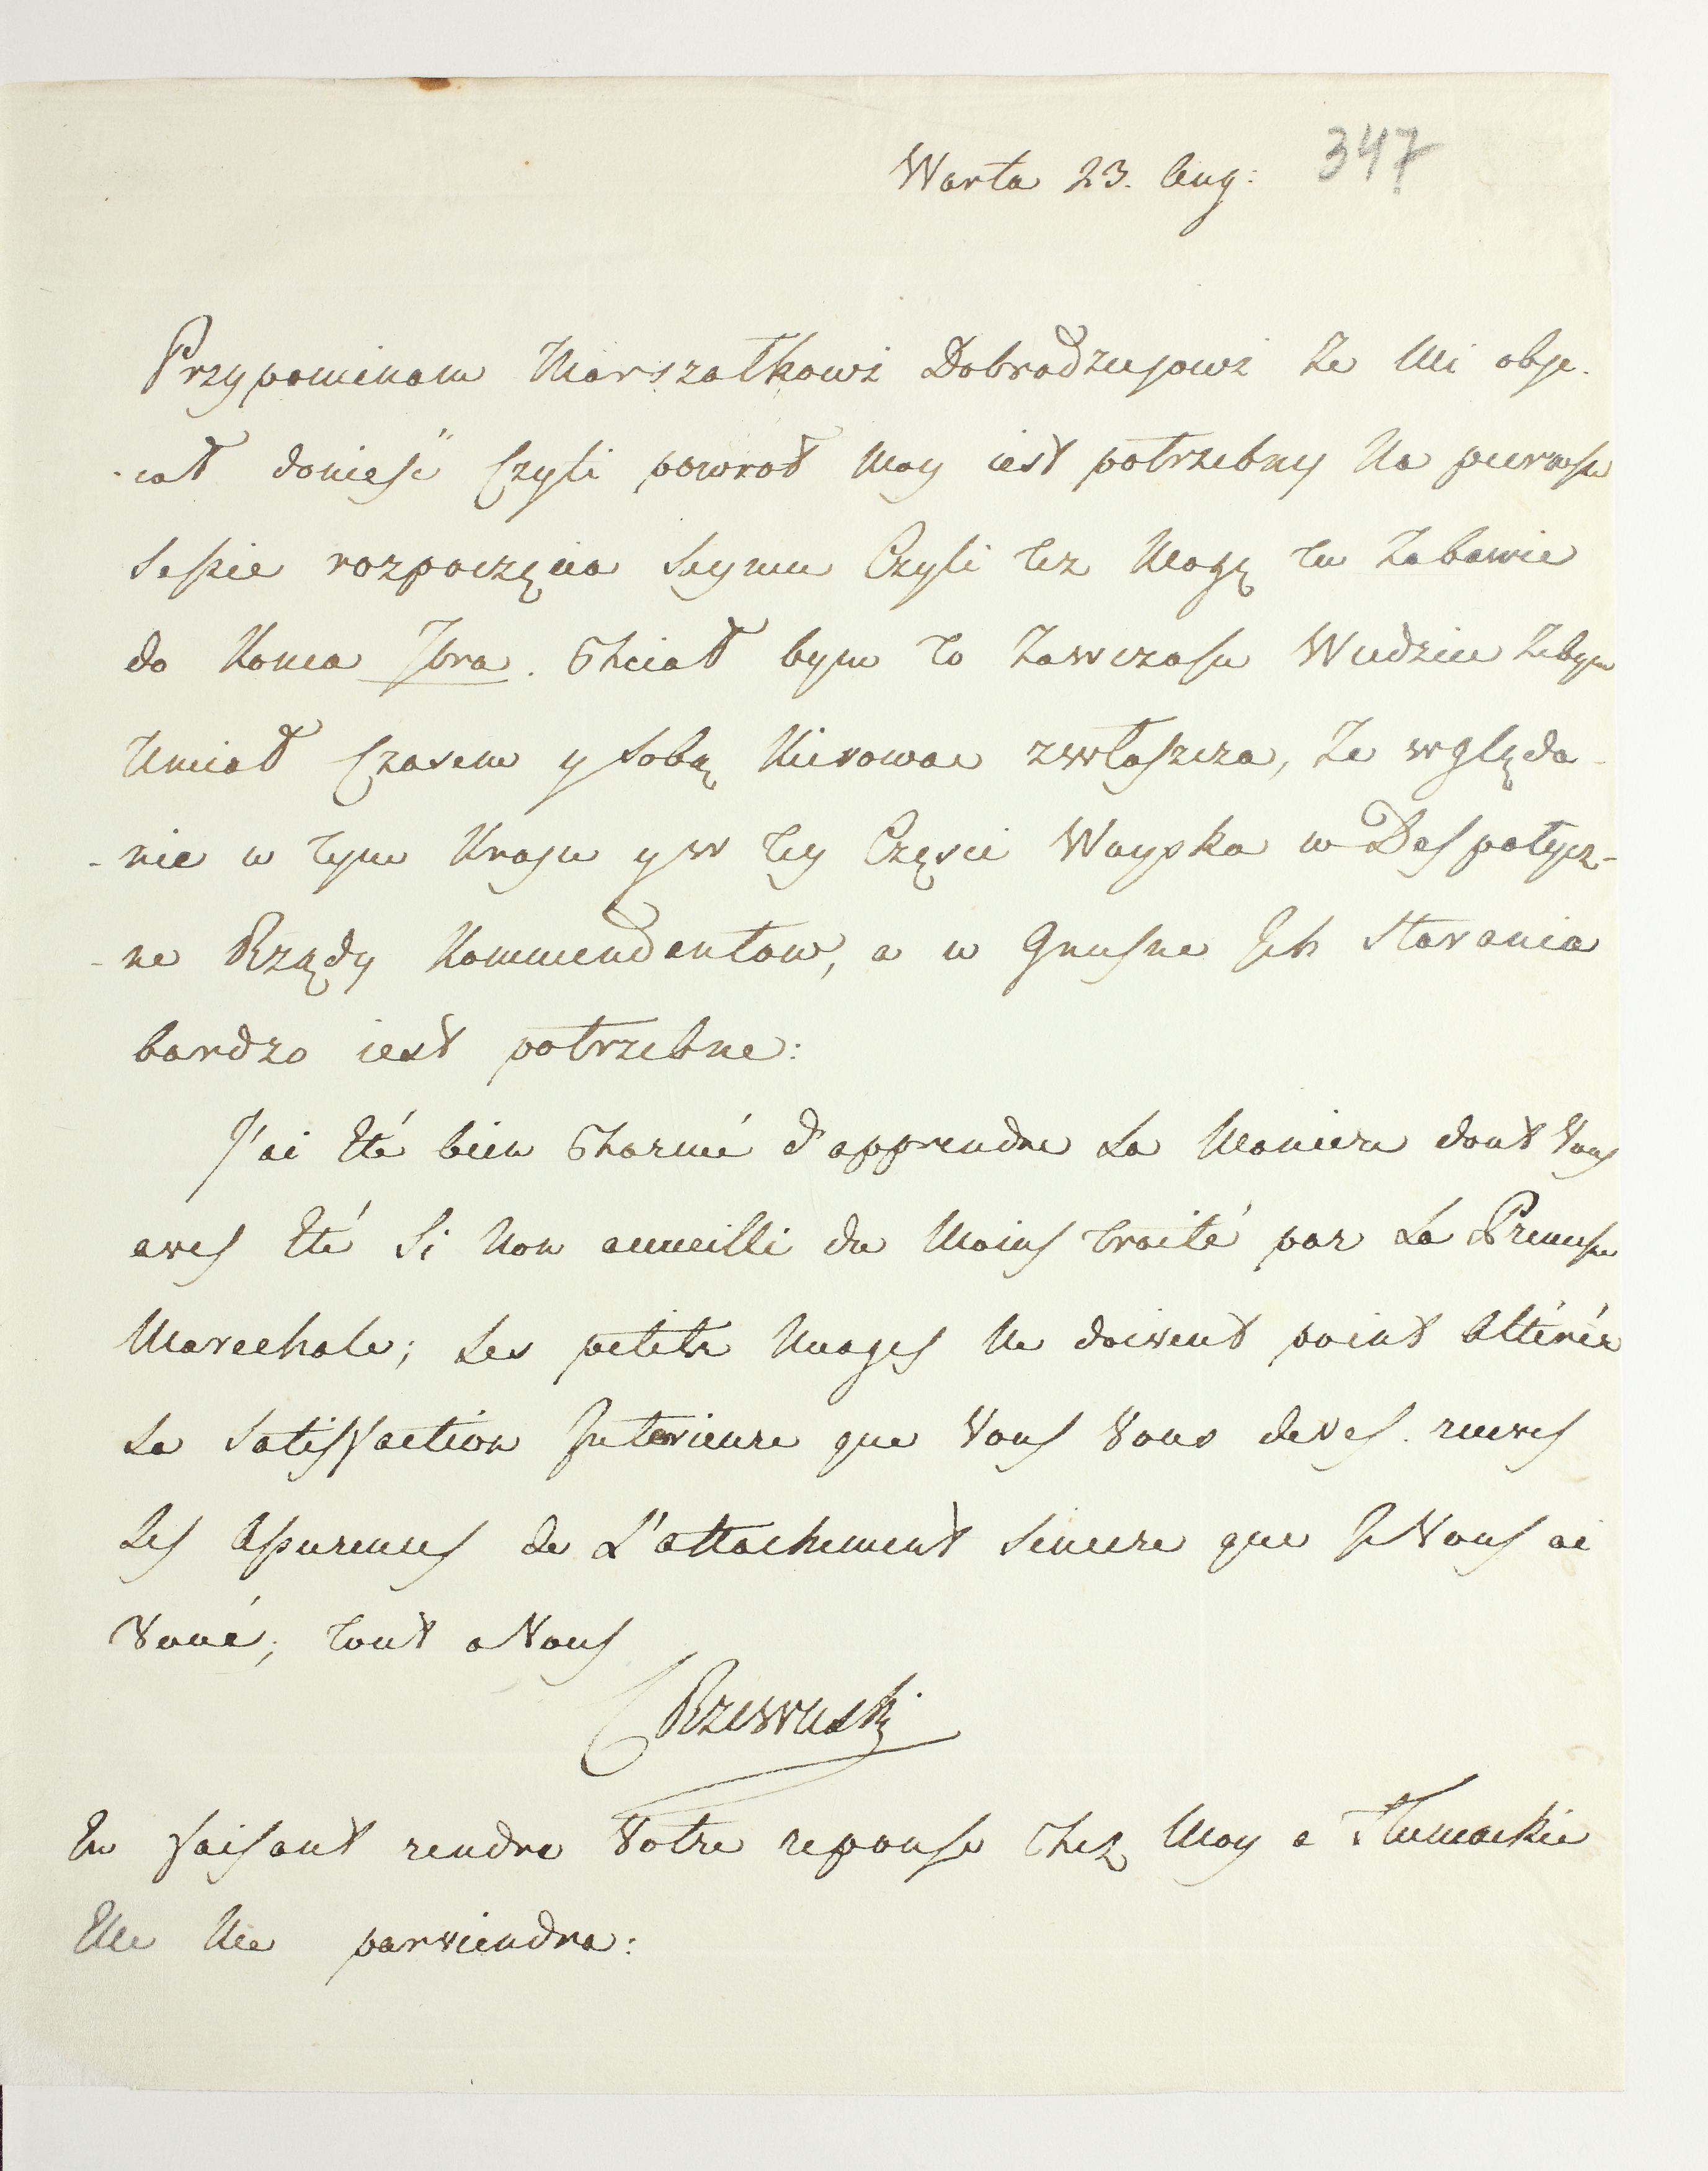 Warta 23. Aug: 347
Przypominam Marszałkowi Dobrodziejowi że Mi obje-
-cał donieść Czyli powrot Moy iest potrzebny Na pierwsze
Sessie rozpoczęcia Seymu Czyli też Mogę tu Zabawic
do Konca 7bra. Chciał bym to Zawczasu Wiedziec Zebym
Umiał Czasem y Sobą Kierowac zwłaszcza, że wgląda-
-nie w tym Kraju y w tey Częsci Woyska w Despotycz-
-ne Rządy Kommendantow, a w Gnusne Ich Starania
bardzo iest potrzebne:
J'ai Eté bien Charmé d'apprendre La Maniere dont Vous
aves Eté Si Non accueilli du Moins traité par La Princesse
Marechale; Les petits Nuages Ne doivent point Altérér
La Satisfaction Interieure que Vous Vous deves. receves
Les Assurences de L'attachement Sincere que Je Vous ai
Voué; tout a Vous
C Rzewuski
En faisant rendre Votre reponse Chez Moy a Tlumackie
Elle Me parviendra: